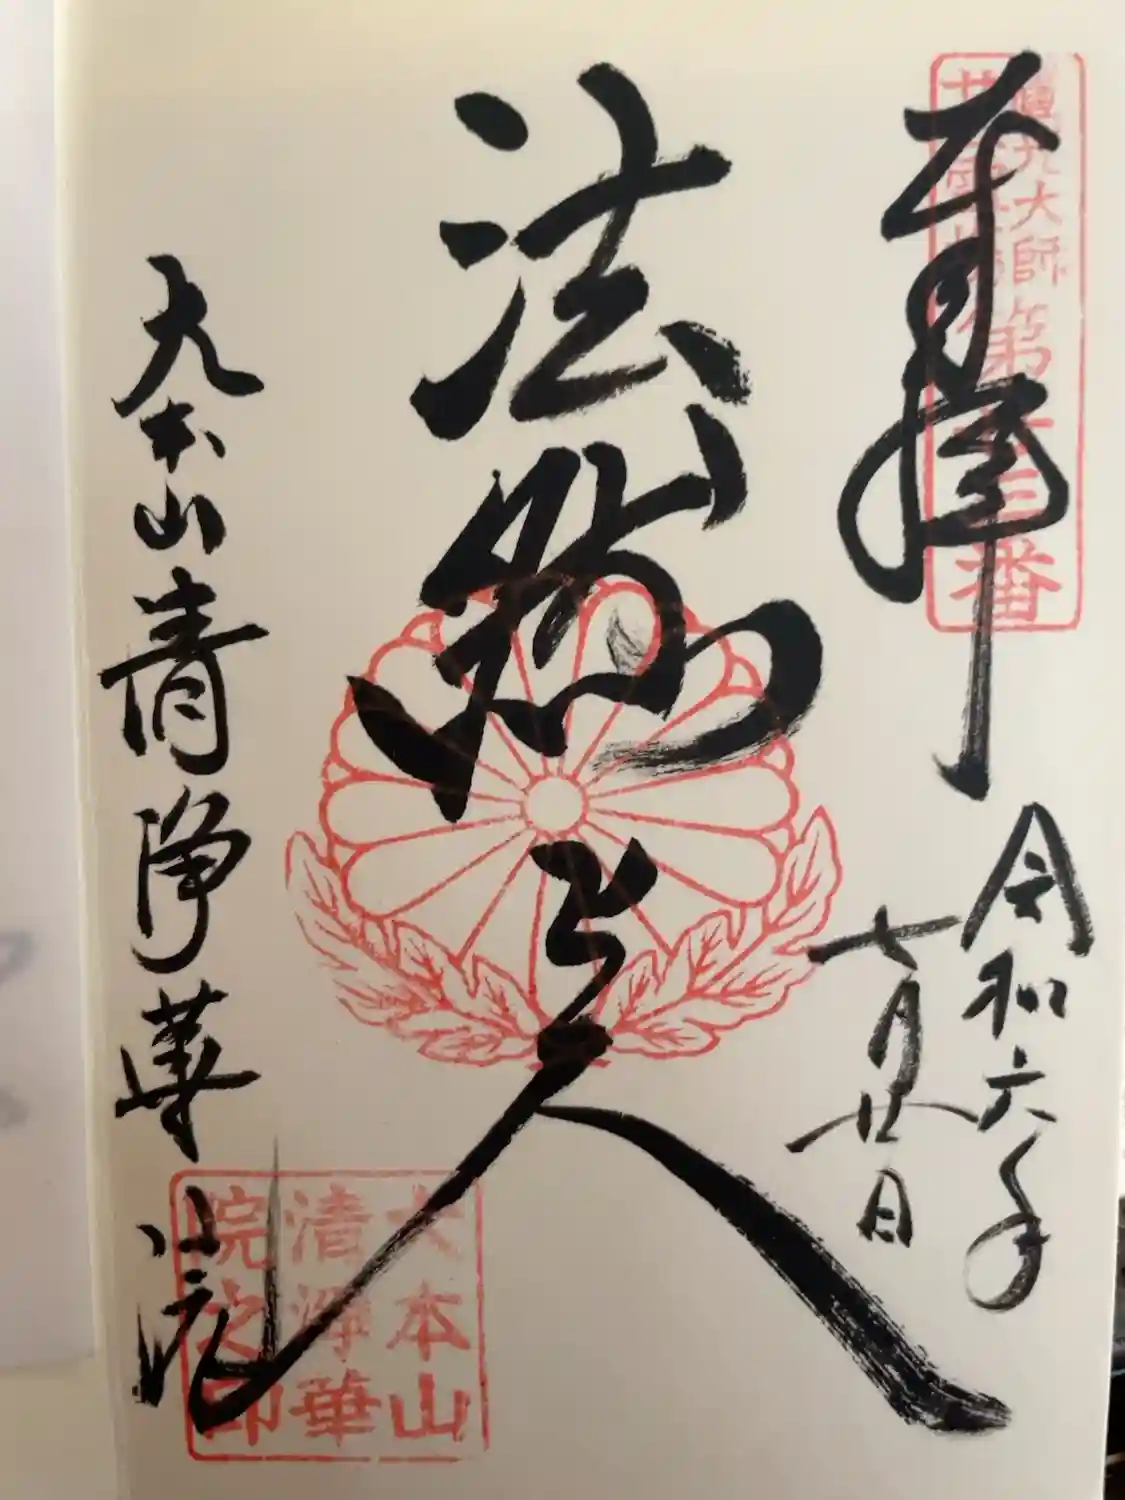 奉拝
圓光大師
廿五霊場
第廿三番
令和六年
七月廿日
法然上人
大本山清浄華院
大本山
清浄華
院之印